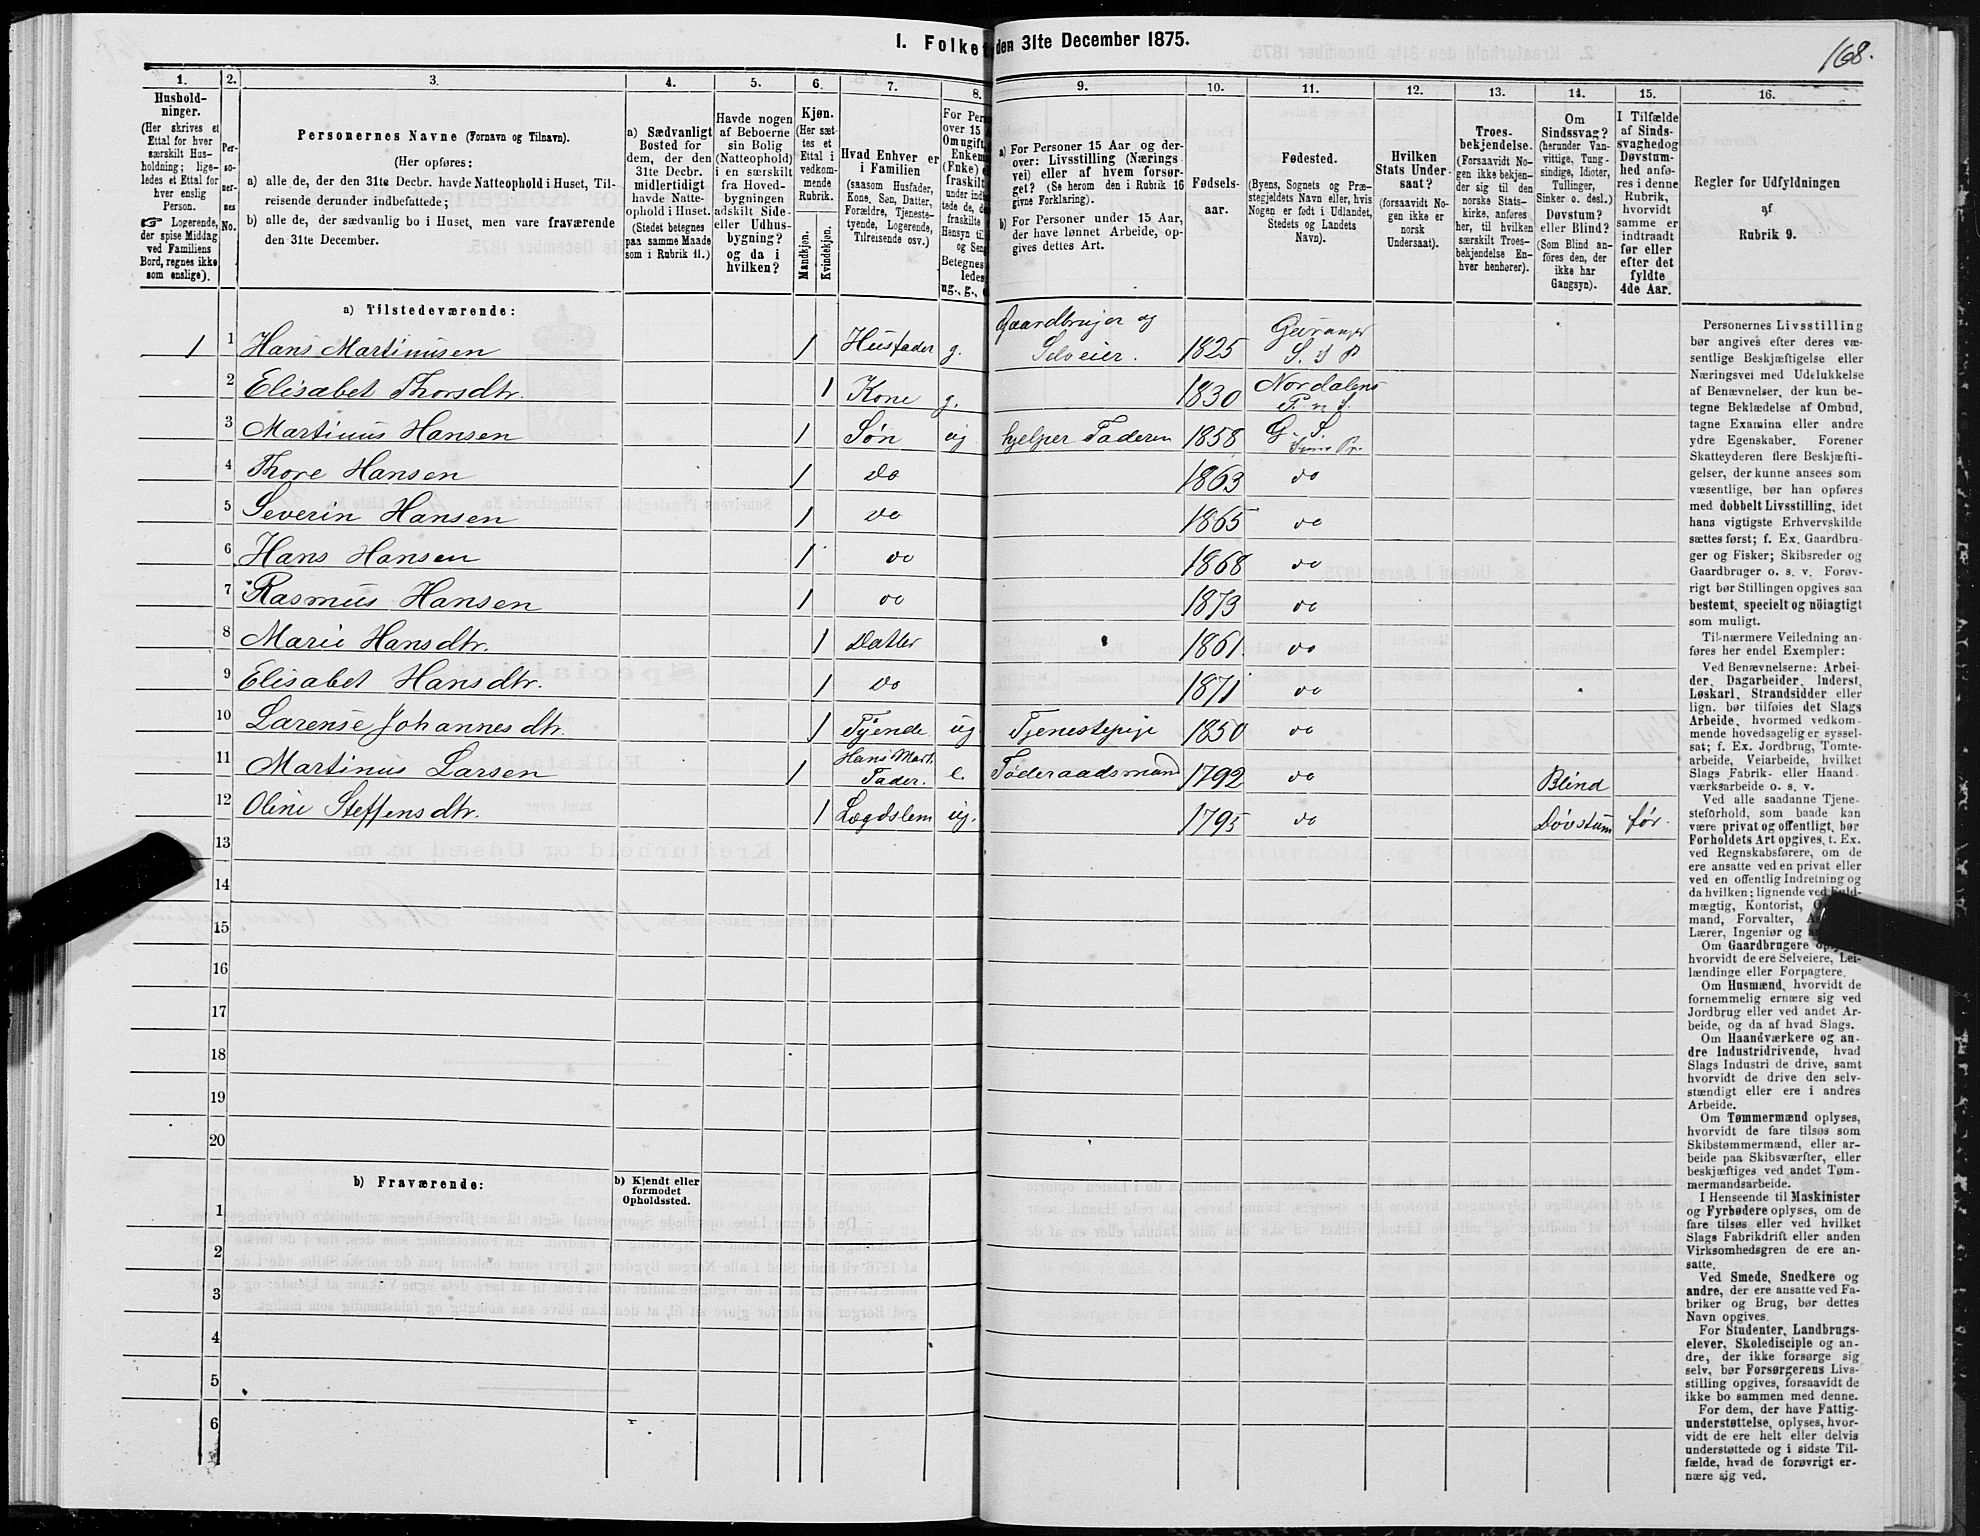 168.
I. Folket
den 31te December 1875.
1. 2. 3. 4. 5. 6. 7. 8. 9. 10. 11. 12. 13. 14. 15. 16.
Hushold-
ninger.
(Her skrives et
Ettal for hver
særskilt Hus-
holdning; lige-
ledes et Ettal for
hver enslig
Person.
☞ Logerende,
der spise Middag
ved Familiens
Bord, regnes ikke
som enslige).
Per-
so-
ner-
nes
No.
Personernes Navne (Fornavn og Tilnavn).
(Her opføres:
a) alle de, der den 31te Decbr. havde Natteophold i Huset, Til-
reisende derunder indbefattede;
b) alle de, der sædvanlig bo i Huset, men vare fraværende
den 31te December.
a) Sædvanligt
Bosted for
dem, der den
31te Decbr.
midlertidigt
havde Natte-
ophold i Huset.
(Stedet betegnes
paa samme Maade
som i Rubrik 11.)
Havde nogen
af Beboerne
sin Bolig
(Natteophold)
i en særskilt
fra Hoved-
bygningen
adskilt Side-
eller Udhus-
bygning?
og da i
hvilken?
Kjøn.
(Her sæt-
tes et
Ettal i
vedkom-
mende
Rubrik.
Mandkjøn.
Kvindekjøn.
Hvad Enhver er
i Familien
(saasom Husfader,
Kone, Søn, Datter,
Forældre, Tjeneste-
tyende, Logerende,
Tilreisende osv.)
For Pers
over 15 A
Om ugift,
Enkem
(Enke) e
fraskilt
under ind
tede de, d
fraskilte
Hensyn til
og Sen
Betegnes
ledes
ug., g., e
a) For Personer 15 Aar og der-
over: Livsstilling (Nærings
vei) eller af hvem forsør-
get? (Se herom den i Rubrik 16
givne Forklaring).
b) For Personer under 15 Aar,
der have lønnet Arbeide, op-
gives dettes Art.
Fødsels-
aar.
Fødested.
(Byens, Sognets og Præ-
stegjeldets Navn eller, hvis
Nogen er født i Udlandet,
Stedets og Landets
Navn).
Hvilken
Stats Under-
saat?
(forsaavidt No-
gen ikke er
norsk
Undersaat).
Troes-
bekjendelse.
(Forsaavidt No-
gen ikke bekjen-
der sig til den
norske Stats-
kirke, anføres
her, til hvilken
særskilt Troes-
bekjendelse En-
hver henhører).
Om
Sindssvag?
(herunder Van-
vittige, Tung-
sindige, Idioter,
Tullinger,
Sinker o. desl.)
Døvstum?
eller Blind?
(Som Blind an-
føres den, der
ikke har
Gangsyn).
I Tilfælde
af Sinds-
svaghed og
Døvstum-
hed anfø-
res i denne
Rubrik,
hvorvidt
samme er
indtraadt
før eller
efter det
fyldte
4de Aar.
Regler for Udfyldningen
af
Rubrik 9.
a) Tilstedeværende:
1 1 Hans Martinusen 1 Husfader g. Gaardbruger og Selveier. 1825 Geiranger S. i P
2 Elisabet Thorsdtr. 1 Kone g. 1830 Nordalens P. n S.
3 Martinus Hansen 1 Søn ug hjelper Faderen 1858 G. S.
4 Thore Hansen 1 do 1863 do
5 Severin Hansen 1 do 1865 do
6 Hans Hansen 1 do 1868 do
7 Rasmus Hansen 1 do 1873 do
8 Marie Hansdtr. 1 Datter 1861 do
9 Elisabet Hansdtr. 1 do 1871 do
10 Larense Johannesdtr. 1 Tyende ug Tjenestepige 1850 do
11 Martinus Larsen 1 Hans Mart. Fader. e. Føderaadsmand 1792 do Blind
12 Oline Steffensdtr. 1 Lægdslem ug. 1795 do Døvstum før.
13
14
15
16
17
18
19
20
b) Fraværende:
b) Kjendt eller
formodet
Opholdssted.
1
2
3
4
5
6
Personernes Livsstilling
bør angives efter deres væ-
sentlige Beskjæftigelse eller
Næringsvei med Udelukkelse
af Benævnelser, der kun be-
tegne Beklædelse af Ombud,
tagne Examina eller andre
ydre Egenskaber. Forener
Skatteyderen flere Beskjæfti-
gelser, der kunne ansees som
væsentlige, bør han opføres
med dobbelt Livsstilling, idet
hans vigtigste Erhvervskilde
sættes først; f. Ex. Gaardbru-
ger og Fisker; Skibsreder og
Gaardbruger o. s. v. Forøv-
rigt bør Stillingen opgives saa
bestemt, specielt og nöiagtigt
som muligt.
Til nærmere Veiledning an-
føres her endel Exempler:
Ved Benævnelserne: Arbei-
der, Dagarbeider, Inderst,
Løskarl, Strandsidder eller
lign. bør tilføies det Slags
Arbeide, hvormed vedkom-
mende hovedsagelig er syssel-
sat; f. Ex. Jordbrug, Tomte-
arbeide, Veiarbeide, hvilket
Slags Fabrik- eller Haand-
værksarbeide o. s. v.
Ved alle saadanne Tjene-
steforhold, som baade kan
være privat og offentligt, bør
Forholdets Art opgives, t. Ex.
ved Regnskabsførere, om de
ere ansatte ved en privat eller
ved en offentlig Indretning og
da hvilken; lignende ved Fuld-
mægtig, Kontorist, O
mand, Forvalter, As
Lærer, Ingeniør og
Om Gaardbrugere oplys
hvorvidt de ere Selveiere, Lei-
lændinge eller Forpagtere.
Om Husmænd, hvorvidt de
fornemmelig ernære sig ved
Jordbrug eller ved andet Ar-
beide, og da af hvad Slags.
Om Haandværkere og an-
dre Industridrivende, hvad
Slags Industri de drive, samt
hvorvidt de drive den selv-
stændigt eller ere i andres
Arbeide.
Om Tømmermænd oplyses,
hvorvidt de fare tilsøs som
Skibstømmermænd, eller ar-
beide paa Skibsværfter, eller
beskjæftiges ved andet Tøm-
mermandsarbeide.
I Henseende til Maskinister
og Fyrbødere oplyses, om de
fare tilsøs eller ved hvilket
Slags Fabrikdrift eller anden
Virksomhedsgren de ere an-
satte.
Ved Smede, Snedkere og
andre, der ere ansatte ved Fa-
briker og Brug, bør dettes
Navn opgives.
For Studenter, Landbrugs-
elever, Skoledisciple og an-
dre, der ikke forsørge sig
selv, bør Forsørgerens Livs-
stilling opgives, forsaavidt de
ikke bo sammen med denne.
For dem, der have Fattig-
understøttelse, oplyses, hvor-
vidt de ere helt eller delvis
understøttede og i sidste Til-
fælde, hvad de forøvrigt er-
nære sig ved.